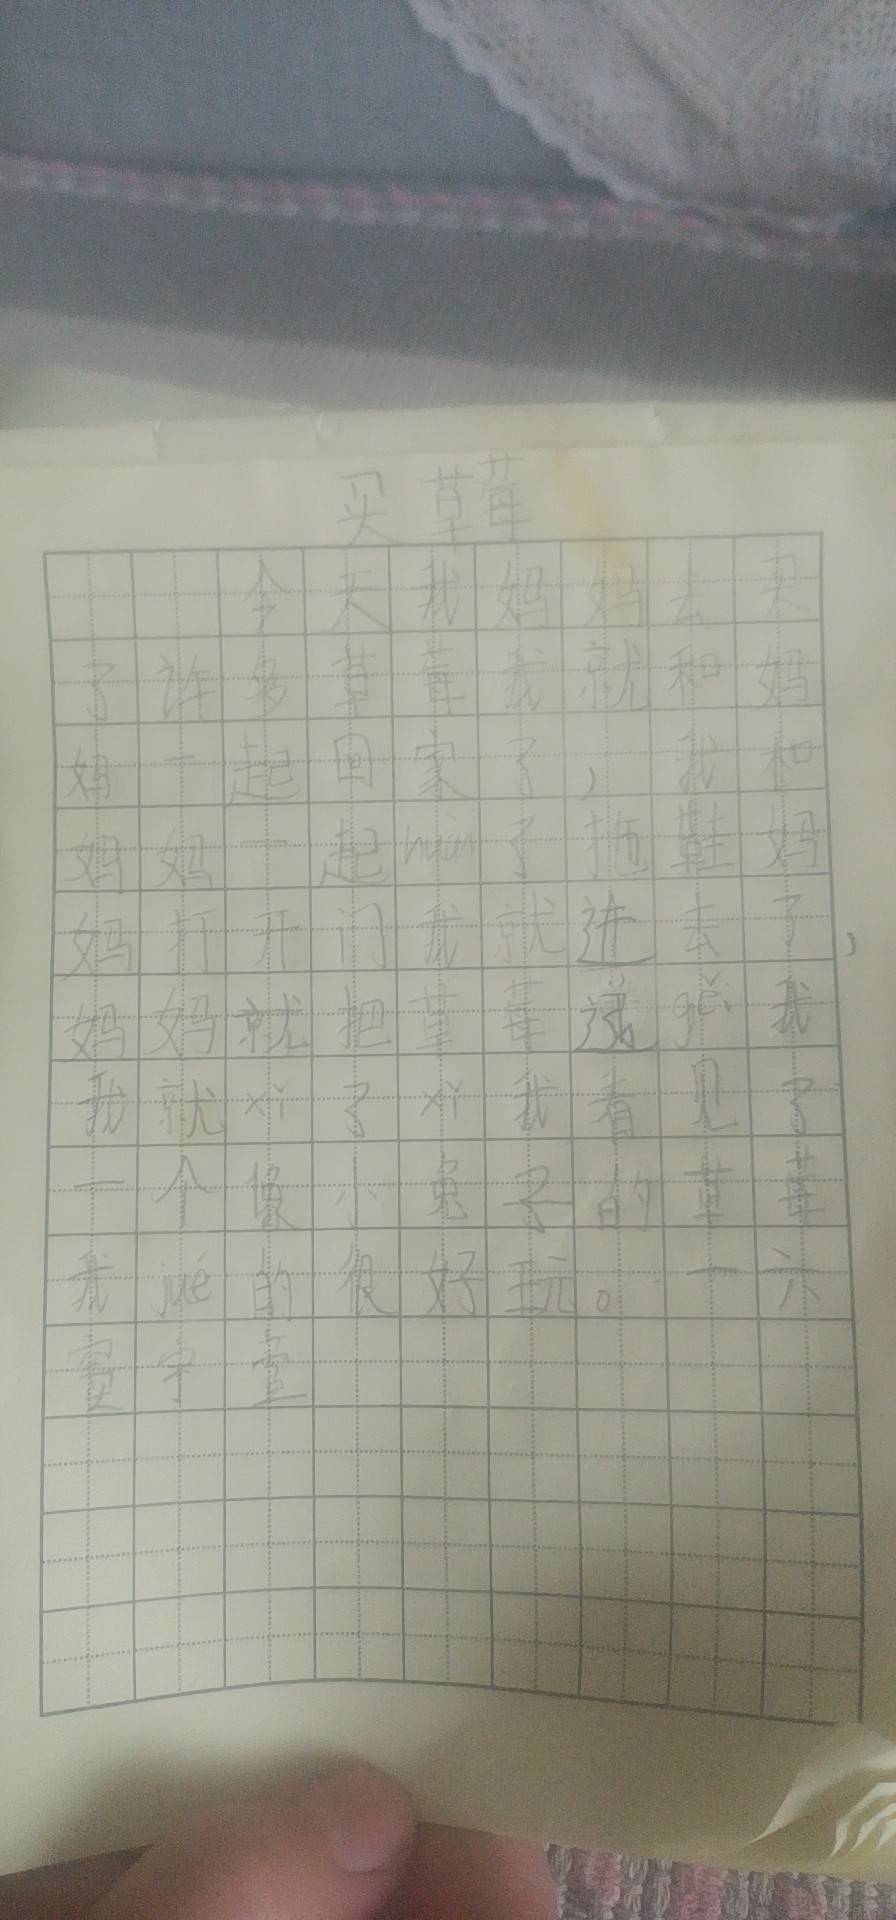 买草莓
今天我妈妈去买
了许多草莓我就和妈
妈一起回家了，我和
妈妈一起huàn了拖鞋妈
妈打开门我就进去了，
妈妈就把草莓递gěi我
我就xǐ了xǐ我看见了
一个像小兔子的草莓
我jué的很好玩。一六
窦宇萱